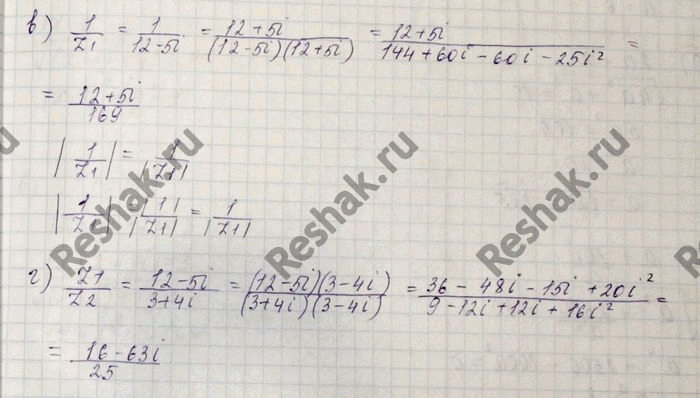 в) 1/z1 = 1/(12-5i) = (12+5i)/((12-5i)(12+5i)) = (12+5i)/(144+60i-60i-25i²) =
= (12+5i)/169
|1/z1| = 1/|z1|
|1/z1| = |1|/|z1| = 1/|z1|
г) z1/z2 = (12-5i)/(3+4i) = ((12-5i)(3-4i))/((3+4i)(3-4i)) = (36-48i-15i+20i²)/(9-12i+12i+16i²) =
= (16-63i)/25
Reshak.ru
Reshak.ru
Reshak.ru
Reshak.ru